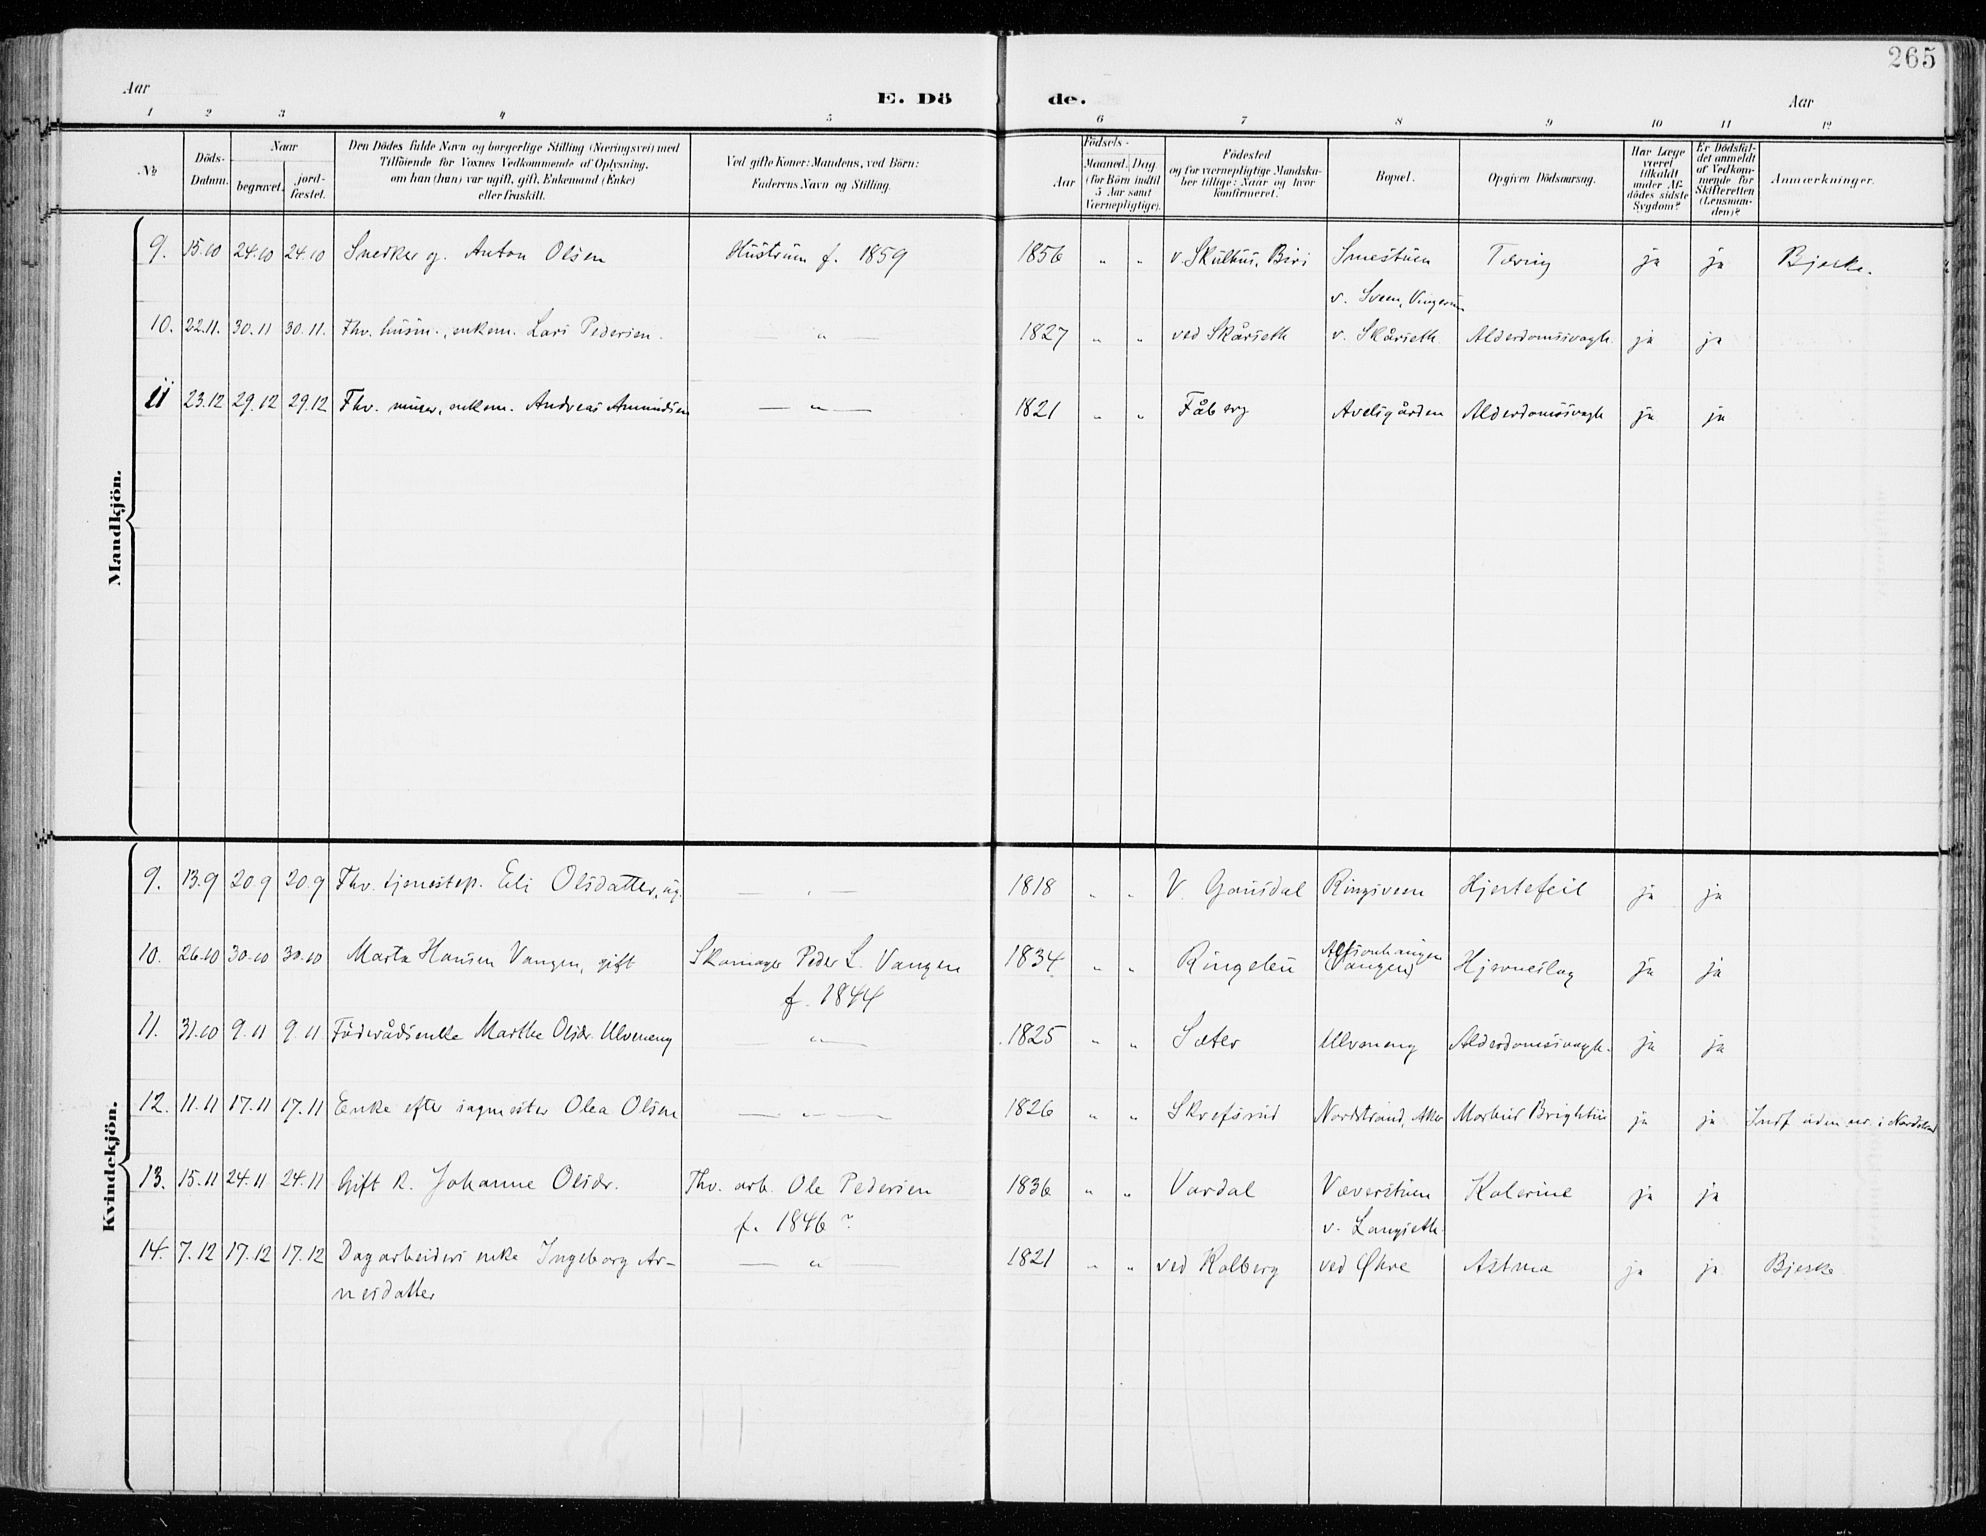 265
Aar E. Dö de. Aar
1 2 3 4 5 6 7 8 9 10 11 12
No
Döds-Datum.
Naar
begravet.
jord-fæstet.
Den Dödes fulde Navn og borgerlige Stilling (Næringsvei) med
Tilföiende for Voxnes Vedkommende af Oplysning,
om han (hun) var ugift, gift, Enkemand (Enke)
eller fraskilt.
Ved gifte Koner: Mandens, ved Börn:
Faderens Navn og Stilling.
Födsels-
Aar
Maaned. Dag.
(for Börn indtil
5 Aar samt
Værnepligtige).
Födested
og for værnepligtige Mandska-
ber tillige: Naar og hvor
konfirmeret.
Bopæl.
Opgiven Dödsaarsag.
Har Læge
været
tilkaldt
under Af-
dödes sidste
Sygdom?
Er Dödsfal-
det anmeldt
af Vedkom-
mende for
Skifteretten
(Lensman-
den)?
Anmærkninger.
Mandkjön.
9. 15.10 24.10 24.10 Snedker g. Anton Olsen Hustruen f. 1859 1856 " " v. Skulhus, Biri Smestuen Tæring ja ja Bjerke.
v. Sveen, Vingerom
10. 22.11. 30.11 30.11. Fhv. husm., enkem. Lars Pedersen. — " — 1827 " " ved Skårseth v. Skårseth Alderdomssvagh. ja ja
11 23.12 29.12 29.12 Fhv. murer, enkem. Andreas Amundsen — " — 1821 " " Fåberg Avelsgården Alderdomssvagh ja ja
Kvindekjön.
9. 13.9 20.9 20.9 Fhv. tjenestep. Eli Olsdatter, ug. — " — 1818 " " V. Gausdal Ringsveen Hjertefeil ja ja
10. 26.10 30.10 30.10 Marta Hansen Vangen, gift Skomager Peder L. Vangen 1834 " " Ringebu (Vangen) Hjerneslag ja ja
f. 1844
11. 31.10 9.11 9.11 Föderådsenke Marthe Olsdr. Ulveneng — " — 1825 " " Sæter Ulveneng Alderdomssvagh. ja ja
12. 11.11 17.11 17.11 Enke efter sagmester Olea Olsen — " — 1826 " " Skrefsrud Nordstrand, Aker Morbus Brightii ja ja Indf. uden nr. i Nordstrand
13. 15.11 24.11 24.11 Gift k. Johanne Olsdr. Fhv. arb. Ole Pedersen 1836 " " Vardal Væverstuen Kolerine ja ja
f. 1846? v. Langseth.
14. 7.12 17.12 17.12 Dagarbeiders enke Ingeborg Ar- — " — 1821 " " ved Kolberg ved Øhre Astma ja ja Bjerke
nesdatter